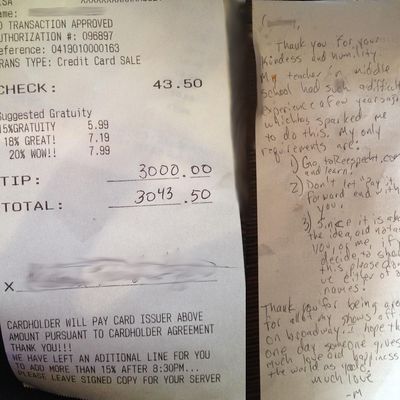 ISA
Name:
D TRANSACTION APPROVED
AUTHORIZATION #: 096897
Reference: 0419010000163
TRANS TYPE: Credit Card SALE
CHECK: 43.50
Suggested Gratuity
15%GRATUITY 5.99
18% GREAT! 7.19
20% WOW!! 7.99
TIP: 3000.00
TOTAL: 3043.50
X
CARDHOLDER WILL PAY CARD ISSUER ABOVE
AMOUNT PURSUANT TO CARDHOLDER AGREEMENT
THANK YOU!!!
WE HAVE LEFT AN ADITIONAL LINE FOR YOU
TO ADD MORE THAN 15% AFTER 8:30PM...
PLEASE LEAVE SIGNED COPY FOR YOUR SERVER
Thank you for your
kindess and humility.
My teacher in middle
school had such a difficult
experience a few years ago
which has sparked me
to do this. My only
requirements are:
1) Go to
and learn!
2) Don't let "Pay it
forward end with
you.
3) Since it is about
the idea and not about
you, or me, if you
decide to share
this please don't
use either of our
names.
Thank you for being around
for all of my shows off
on broadway. I hope that
one day someone gives
much love and happiness
the world as you do.
much love
-M